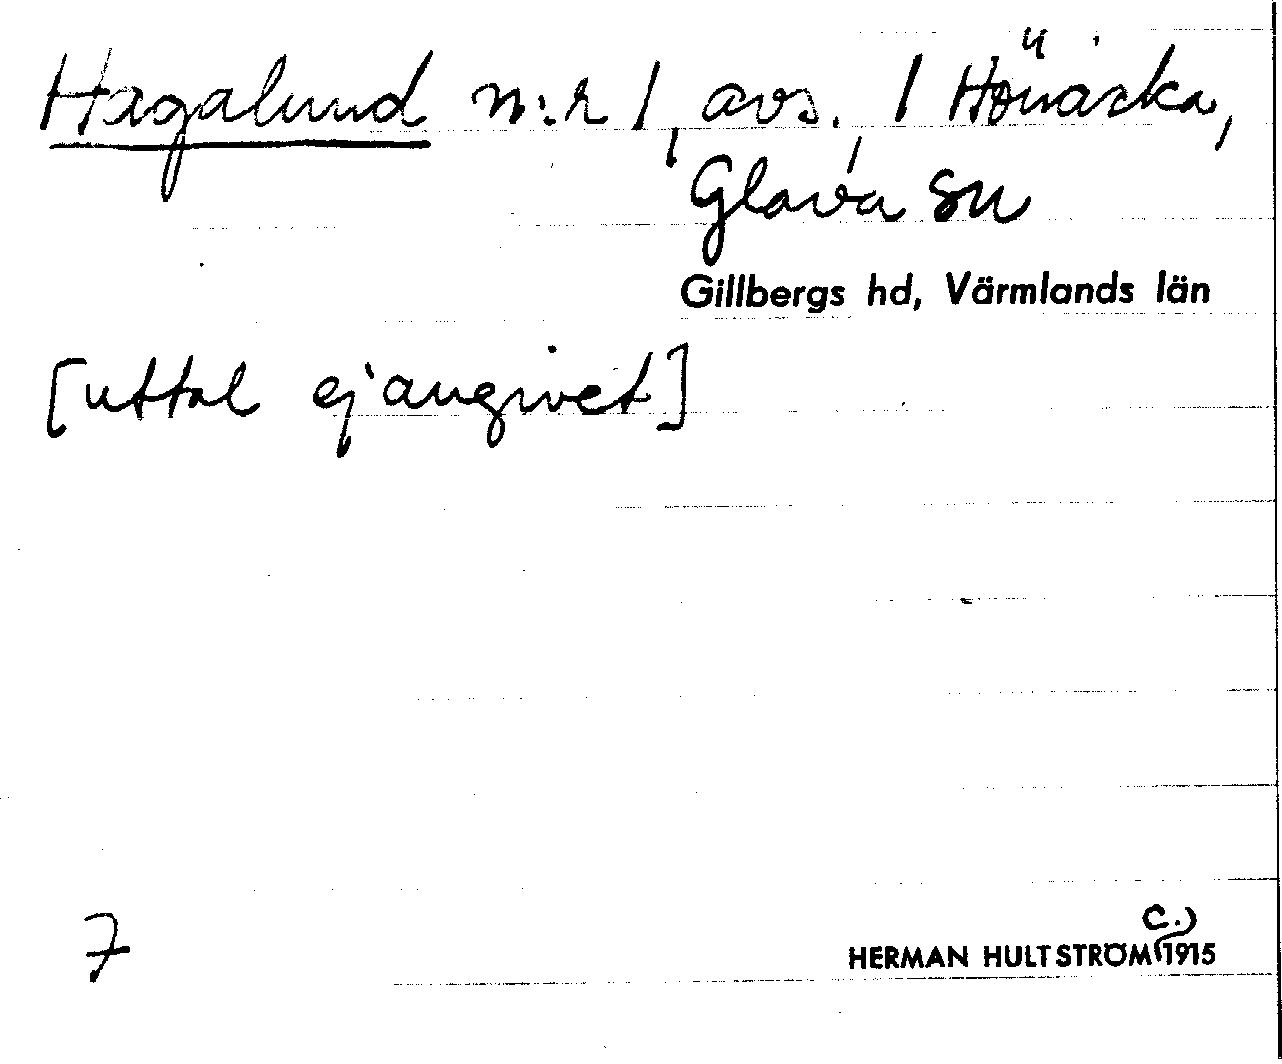 Hagalund n:r 1, avs., 1 Hönacka,
Glava sn
Gillbergs hd, Värmlands län
[uttal ej angivet]
7
HERMAN HULTSTRÖM (c.) 1915